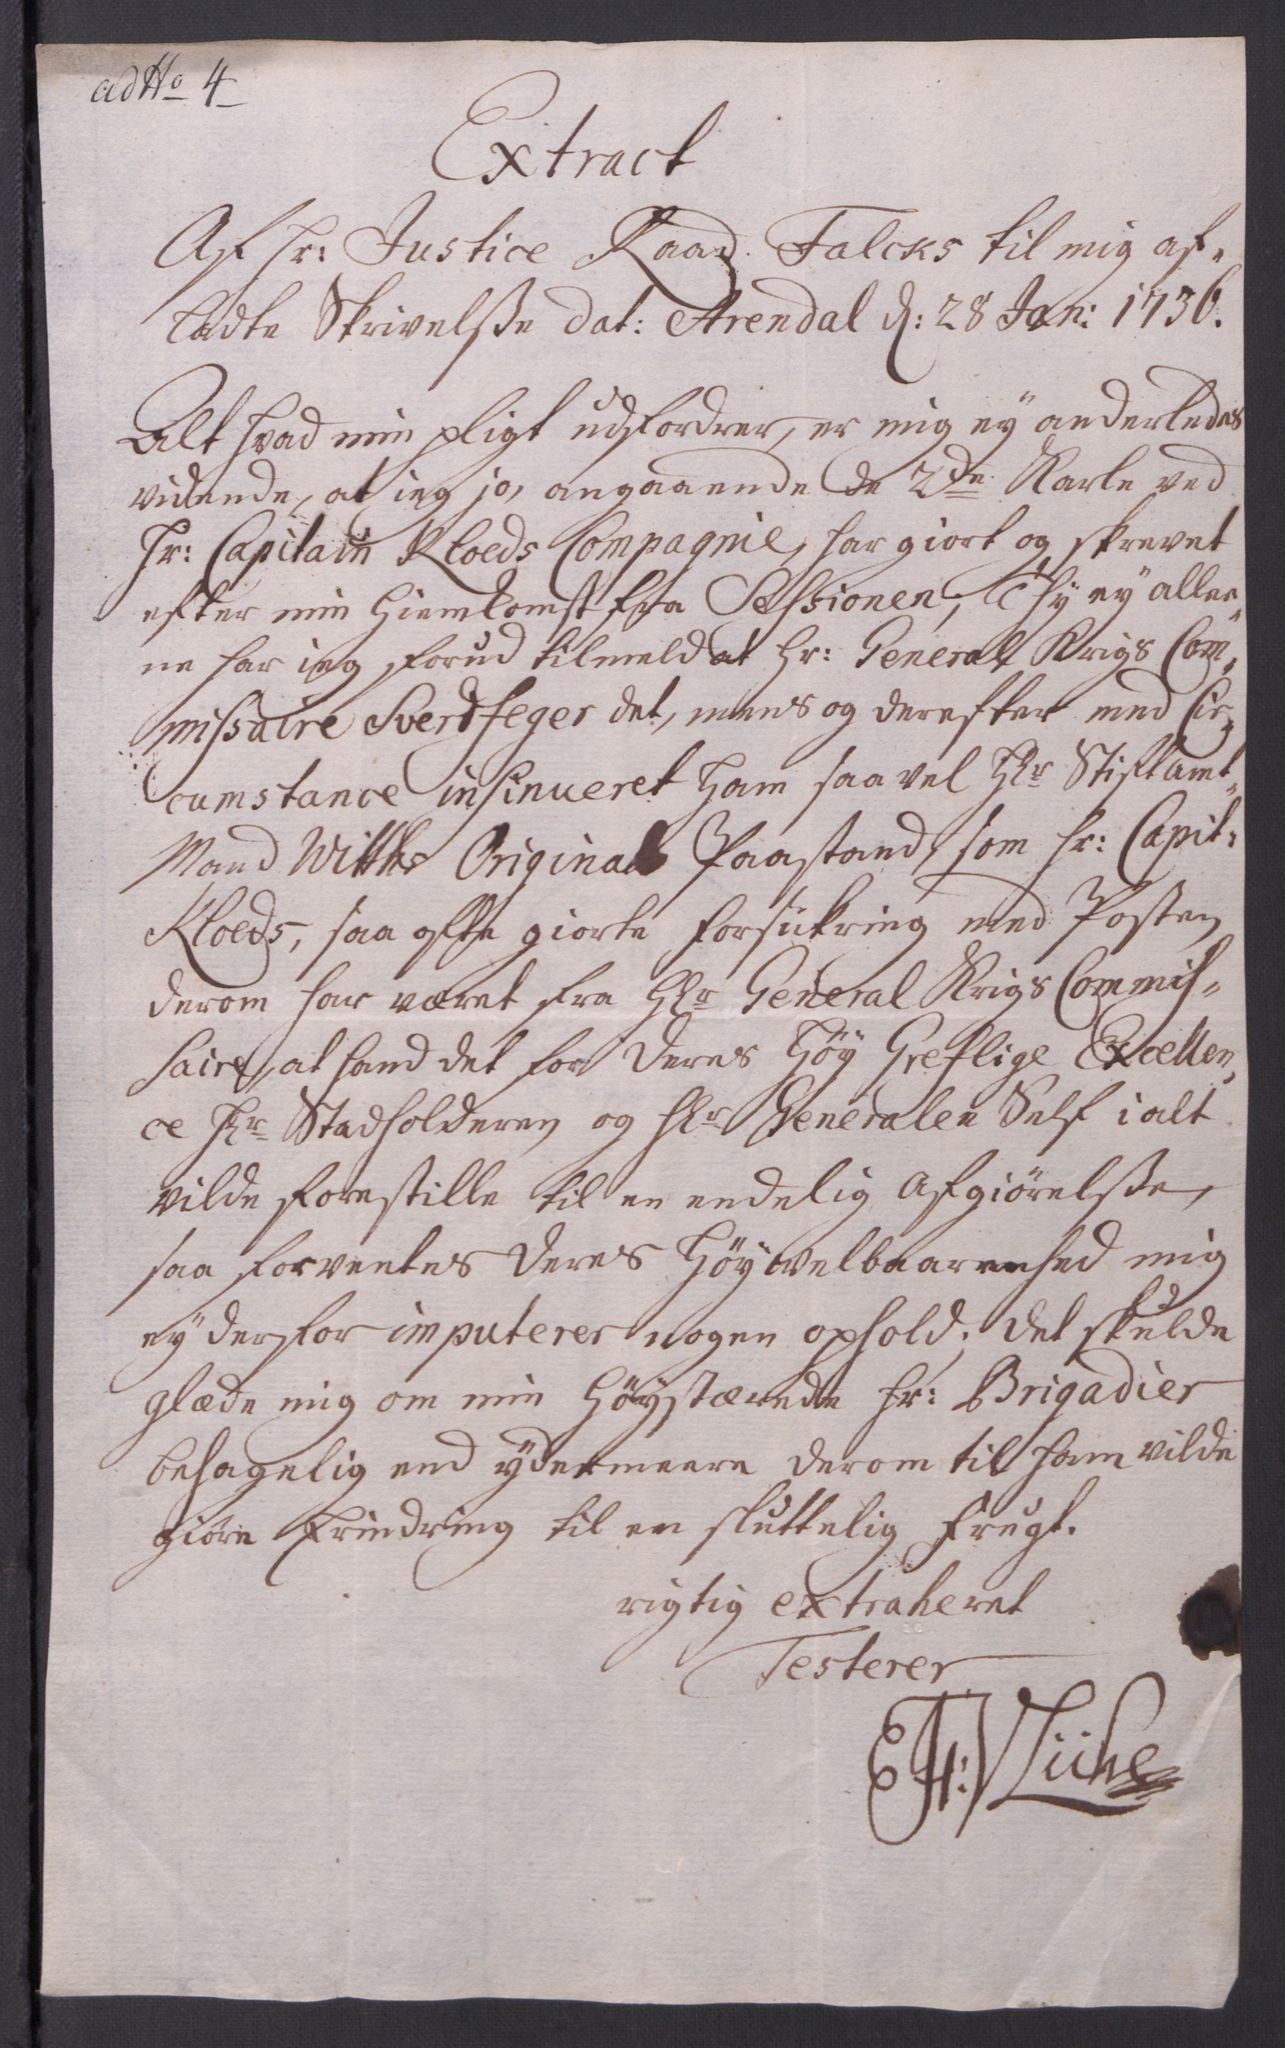 ad No 4
Extract
Af Hr: Justice Raad Falcks til mig af-
ladte Skrivelsse dat: Arendal d: 28 Jan: 1736.
Alt hvad min pligt udfordrer, er mig ey anderledes
vidende, at jeg jo, angaaende de 2de Karle ved
Hr: Capitain Kloeds Compagnie, har giort og skrevet
efter min Hiemkomst fra Sessionen; Thj ey allee-
ne har jeg forud tilmeldt Hr: General Krigs Com-
missaire Sverdfeger det, mens og derefter med Cir-
cumstance insinueret ham saavel Hr Stiftamt-
Mand Witths Original Paastand, som Hr: Capit:
Kloeds, saa ofte giorte forsikring med Posten
derom har været fra Hr General Krigs Commis-
saire, at hand det for Deres Høy Greflige Excellen-
ce Hr Stadholderen og Hr Generalen Self i alt
vilde forestille til en endelig Afgiørelsse,
saa forventes Deres Høyvelbaarenhed mig
ey derfor imputerer nogen ophold; det skulde
glæde mig om min Høystærede Hr: Brigadier
behagelig end ydermeere derom til ham vilde
giøre Erindring til en sluttelig Frugt.
rigtig extraheret
Testerer
Lücke